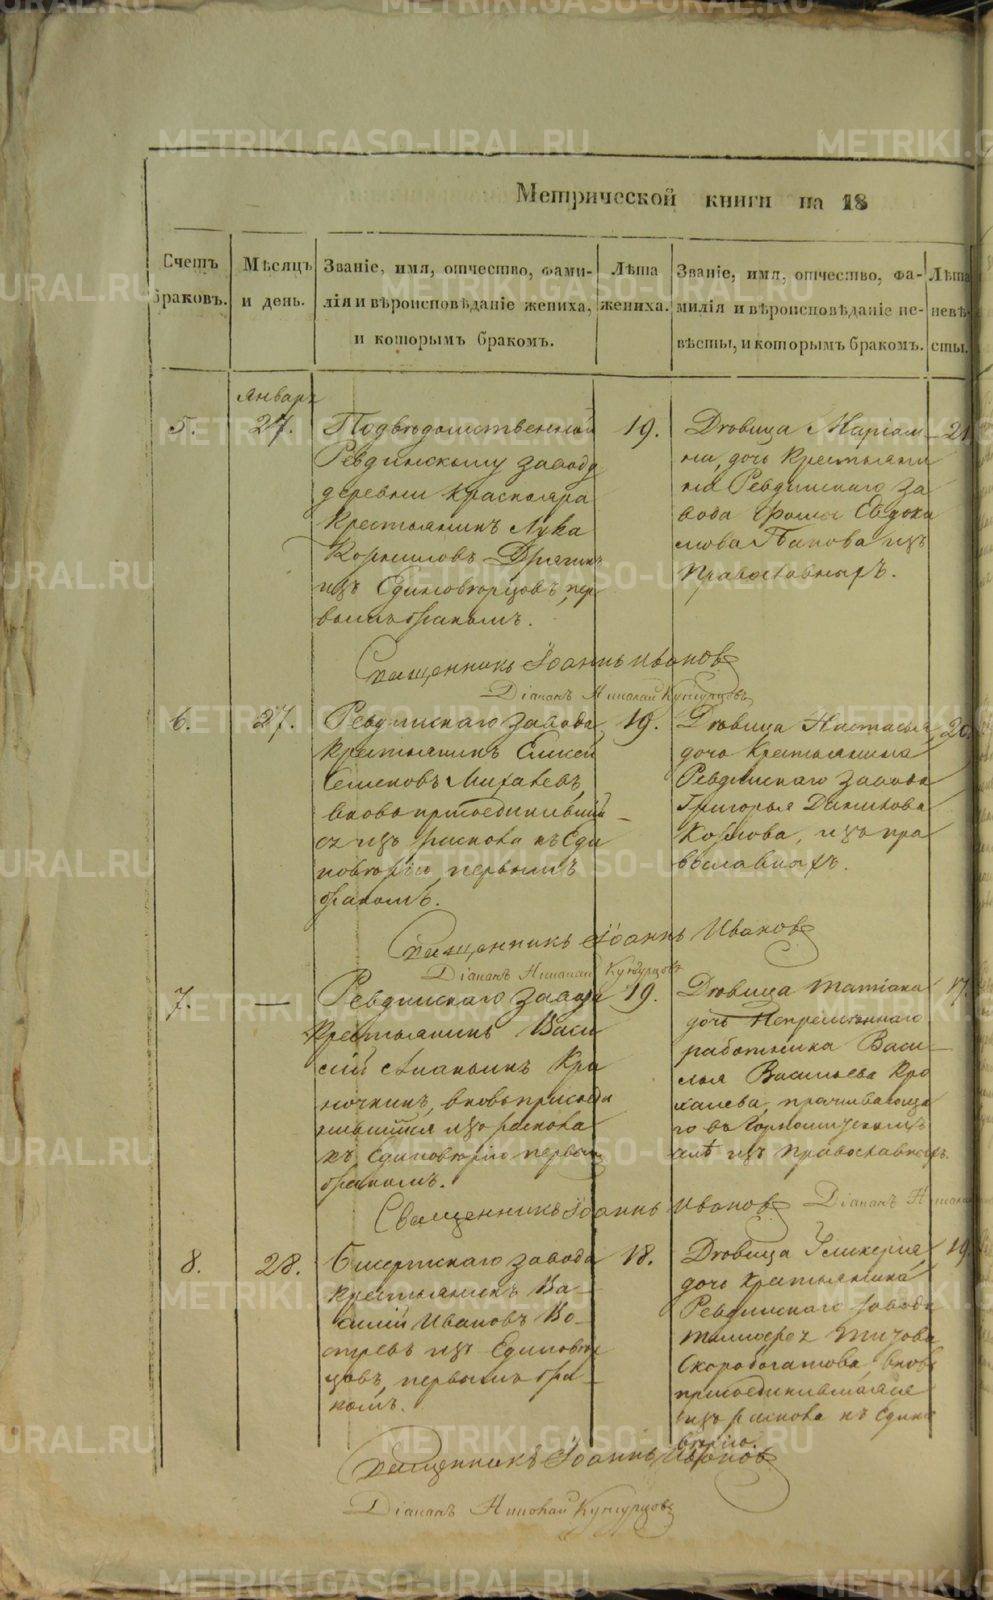 METRIKI.GASO-URAL.RU
Метрической книги на 18
Счетъ браковъ.
Мѣсяцъ и день.
Званіе, имя, отчество, фами-
лія и вѣроисповѣданіе жениха,
и которымъ бракомъ.
Лѣта
жениха.
Званіе, имя, отчество, фа-
милія и вѣроисповѣданіе не-
вѣсты, и которымъ бракомъ.
Лѣта
невѣ-
сты.
Январь
5.
27.
Подвѣдомственной
Ревдинскому заводу
деревни Краснояра
крестьянинъ Лука
Корниловъ
изъ Единовѣрцовъ, пер
вымъ бракомъ.
19.
Дѣвица Маріам-
на, дочь крестьяни
на Ревдинскаго за
вода Фомы Евдоки
мова изъ
Православныхъ.
21
Священникъ Іоаннъ Ивановъ
Діаконъ Николай Кунгурцовъ
6.
27.
Ревдинскаго завода
крестьянинъ Елисей
Семеновъ Михалевъ,
вновь присоединивший
ся изъ раскола къ Еди
новѣрію, первымъ
бракомъ.
19.
Дѣвица Настасья
дочь крестьянина
Ревдинскаго завода
Григорья Данилова
изъ пра
вославныхъ.
20.
Священникъ Іоаннъ Ивановъ
Діаконъ Николай Кунгурцовъ
7.
—
Ревдинскаго завода
крестьянинъ Васи
лій Ананьинъ
вновь присоеди
нившийся изъ раскола
къ Единовѣрію первымъ
бракомъ.
19.
Дѣвица Татіана
дочь Непремѣннаго
работника Васи-
лья Васильева Кро
халева, проживающа
го въ Горнощитскомъ
селѣ изъ Православныхъ.
17.
Священникъ Іоаннъ Ивановъ Діаконъ
8.
28.
Бисертскаго завода
крестьянинъ Ва-
силій Ивановъ Во-
стревъ изъ Единовѣр
цовъ, первымъ бра-
комъ.
18.
Дѣвица Гликерія,
дочь крестьянина
Ревдинскаго завода
Скоробогатова, вновь
присоединившаяся
изъ раскола къ Едино
вѣрію.
19.
Священникъ Іоаннъ Ивановъ
Діаконъ Николай Кунгурцовъ